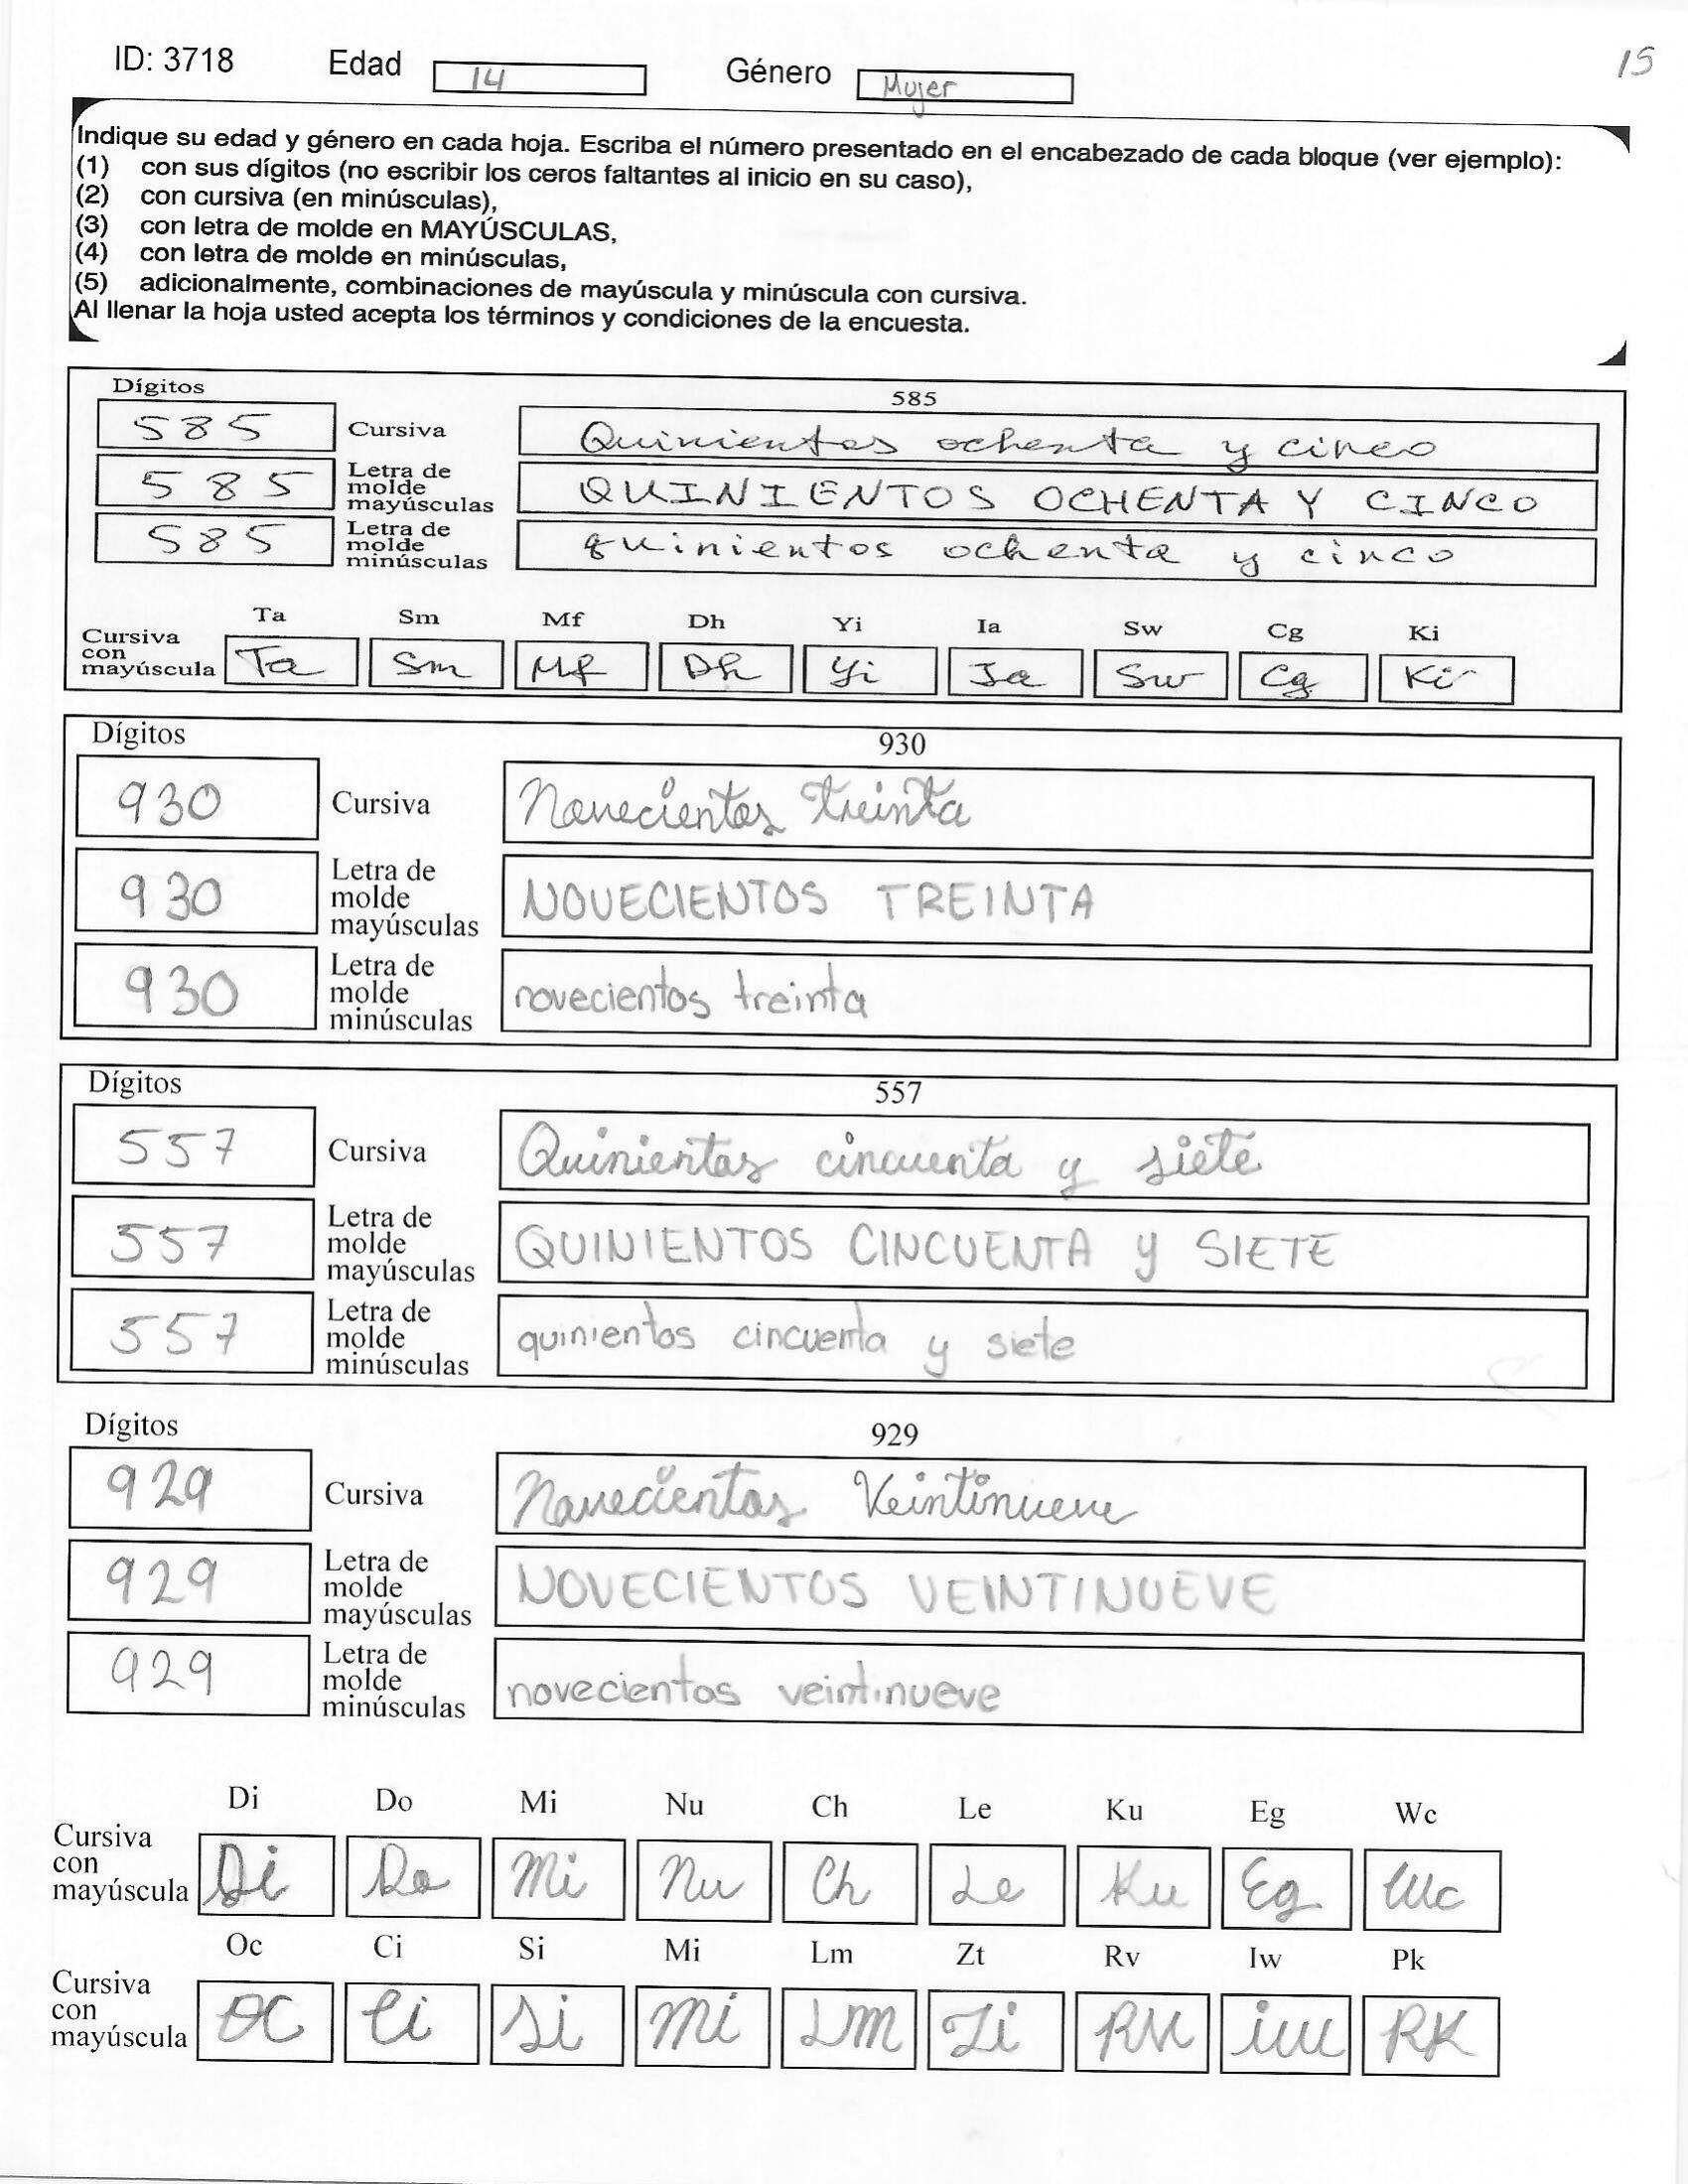 ID: 3718 Edad 14 Género Mujer 15
Indique su edad y género en cada hoja. Escriba el número presentado en el encabezado de cada bloque (ver ejemplo):
(1) con sus dígitos (no escribir los ceros faltantes al inicio en su caso),
(2) con cursiva (en minúsculas),
(3) con letra de molde en MAYÚSCULAS,
(4) con letra de molde en minúsculas,
(5) adicionalmente, combinaciones de mayúscula y minúscula con cursiva.
Al llenar la hoja usted acepta los términos y condiciones de la encuesta.
Dígitos 585
585 Cursiva Quinientos ochenta y cinco
585 Letra de molde mayúsculas QUINIENTOS OCHENTA Y CINCO
585 Letra de molde minúsculas quinientos ochenta y cinco
Ta Sm Mf Dh Yi Ia Sw Cg Ki
Cursiva con mayúscula Ta Sm Mf Dh Yi Ia Sw Cg Ki
Dígitos 930
930 Cursiva Novecientos treinta
930 Letra de molde mayúsculas NOVECIENTOS TREINTA
930 Letra de molde minúsculas novecientos treinta
Dígitos 557
557 Cursiva Quinientos cincuenta y siete
557 Letra de molde mayúsculas QUINIENTOS CINCUENTA y SIETE
557 Letra de molde minúsculas quinientos cincuenta y siete
Dígitos 929
929 Cursiva Novecientos Veintinueve
929 Letra de molde mayúsculas NOVECIENTOS VEINTINUEVE
929 Letra de molde minúsculas novecientos veintinueve
Di Do Mi Nu Ch Le Ku Eg Wc
Cursiva con mayúscula Di Do Mi Nu Ch Le Ku Eg Wc
Oc Ci Si Mi Lm Zt Rv Iw Pk
Cursiva con mayúscula OC Ci Si Mi Lm Zi RV iw PK